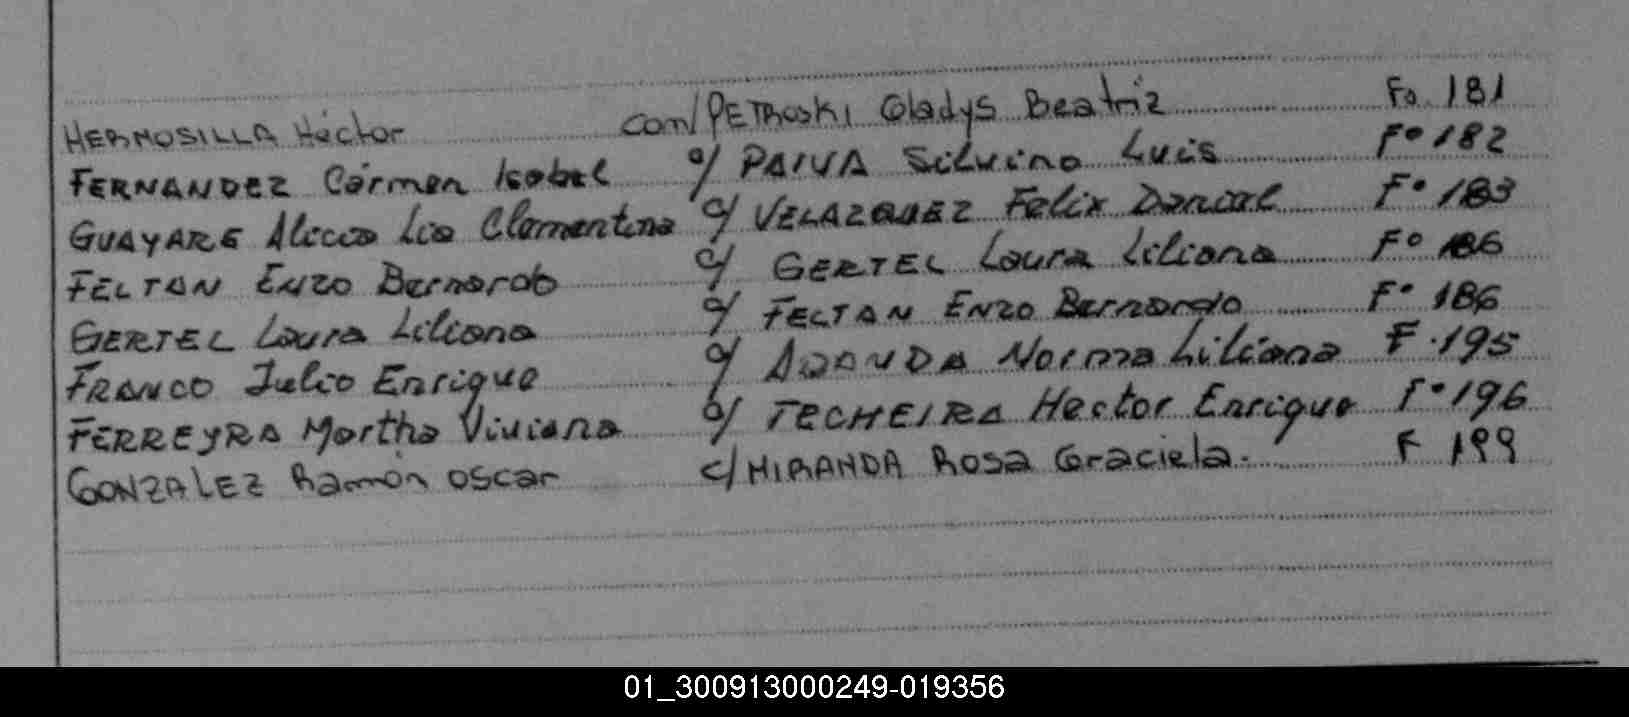 HERMOSILLA Héctor con/PETROSKI Gladys Beatriz Fo. 181
FERNANDEZ Carmen Isabel c/ PAIVA Silvino Luis Fº 182
GUAYARE Alicia Lia Clementina c/ VELAZQUEZ Felix Daniel Fº 183
FELTAN Enzo Bernardo c/ GERTEL Laura Liliana Fº 186
GERTEL Laura Liliana c/ FELTAN Enzo Bernardo Fº 186
FRANCO Julio Enrique c/ Norma Liliana F. 195
FERREYRA Martha Viviana c/ TECHEIRA Hector Enrique Fº 196
GONZALEZ Ramón Oscar c/ MIRANDA Rosa Graciela. F 199
01_300913000249-019356